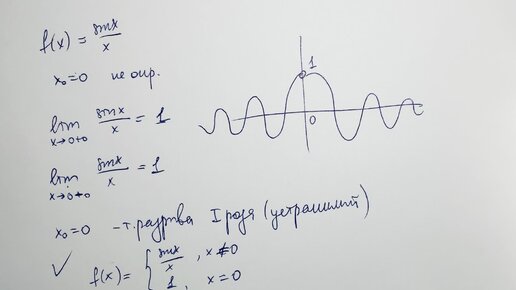 f(x) = sinx/x
x₀=0 не опр.
lim x→0+0 sinx/x = 1
lim x→0-0 sinx/x = 1
x₀=0 - т. разрыва I рода (устранимый)
✓ f(x) = { sinx/x , x≠0
1 , x=0
1
0